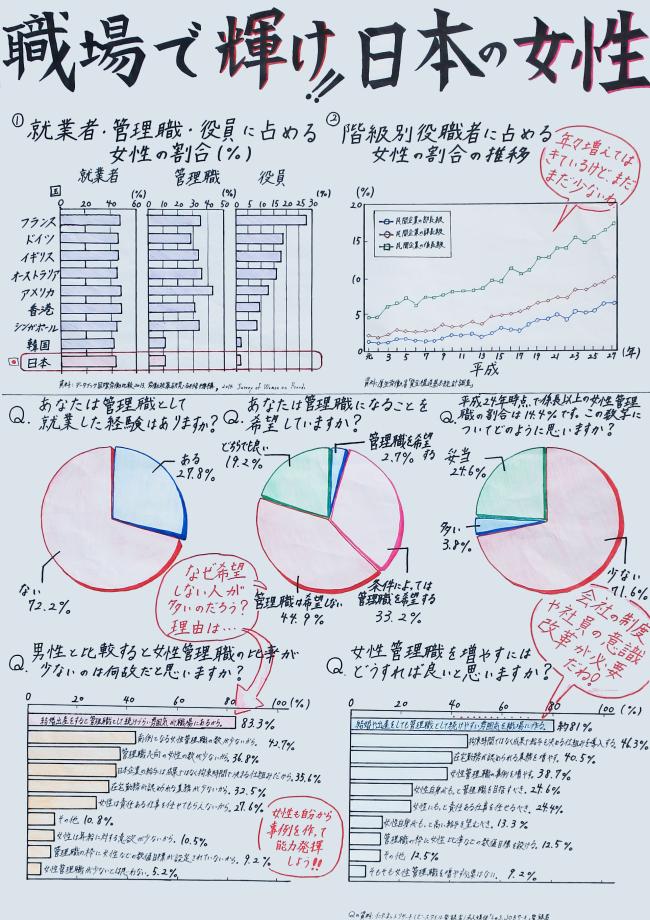 職場で輝け!!日本の女性
① 就業者・管理職・役員に占める
女性の割合(%)
就業者 管理職 役員
国 0 20 40 60 (%) 0 10 20 30 40 50 (%) 0 5 10 15 20 25 30 (%)
フランス
ドイツ
イギリス
オーストラリア
アメリカ
香港
シンガポール
韓国
日本
② 階級別役職者に占める
女性の割合の推移
年々増えては
きているけど、まだ
まだ少ないね
(%)
20
15
10
5
0
民間企業の部長級
民間企業の課長級
民間企業の係長級
元 3 5 7 9 11 13 15 17 19 21 23 25 27 (年)
平成
Q. あなたは管理職として
就業した経験はありますか?
ある
27.8%
ない
72.2%
Q. あなたは管理職になることを
希望していますか?
どちらでも良い
19.2%
管理職を希望する
2.7%
管理職は希望しない
44.9%
条件によっては
管理職を希望する
33.2%
なぜ希望
しない人が
多いのだろう?
理由は…
Q. 平成24年時点で係長以上の女性管理
職の割合は14.4%です。この数字に
ついてどのように思いますか?
妥当
24.6%
多い
3.8%
少ない
71.6%
会社の制度
や社員の意識
改革が必要
だね!
Q. 男性と比較すると女性管理職の比率が
少ないのは何故だと思いますか?
0 20 40 60 80 100 (%)
結婚出産をすると管理職として続けづらい雰囲気が職場にあるから。 83.3%
前例となる女性管理職の数が少ないから。 42.7%
管理職志向の女性の数が少ないから。 36.8%
日本企業の給与は成果ではなく拘束時間で決まる仕組みだから。 35.6%
在宅勤務が認められる業務が少ないから。 32.5%
女性は責任ある仕事を任せてもらえないから。 27.6%
その他 10.8%
女性は昇給に対する意欲が少ないから。 10.5%
管理職の枠に女性などの数値目標が設定されていないから。 9.2%
女性管理職が少ないとは思わない。 5.2%
女性も自分から
事例を作って
能力発揮
しよう!!
Q. 女性管理職を増やすには
どうすれば良いと思いますか?
0 20 40 60 80 100 (%)
結婚や出産をしても管理職として続けやすい雰囲気を職場に作る。 約81%
拘束時間ではなく成果で給与も決める仕組みを導入する。 46.3%
在宅勤務が認められる業務を増やす。 40.5%
女性管理職の事例を増やす。 38.7%
女性自身が、もっと管理職を目指すべき。 24.6%
女性にも、もっと責任ある仕事を任せるべき。 24.4%
女性自身が、もっと高い給与を望むべき。 13.3%
管理職の枠に女性比率などの数値目標を設ける。 12.5%
その他 12.5%
そもそも女性管理職を増やす必要はない。 9.2%